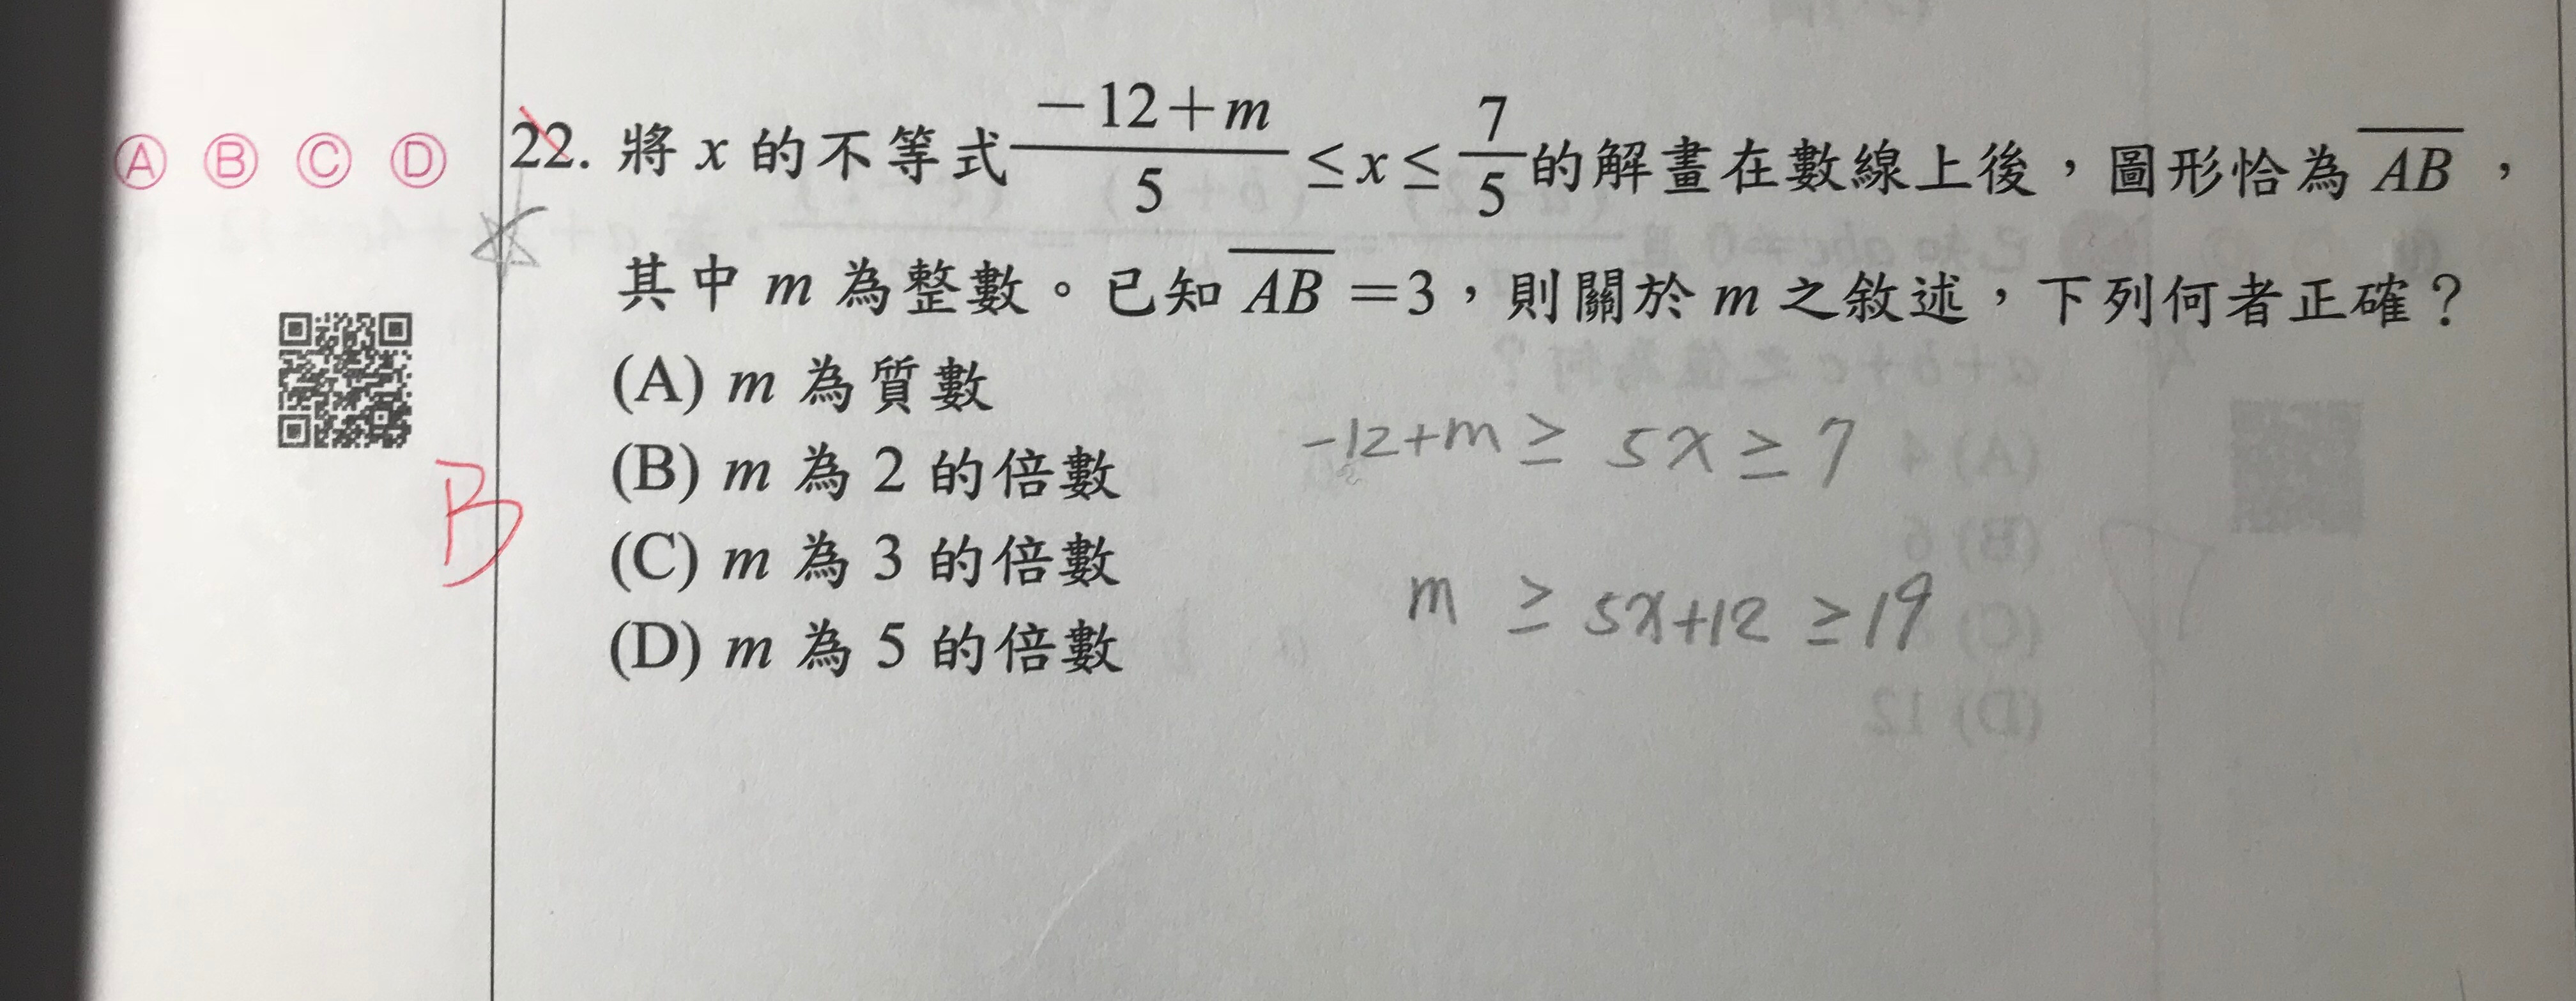 Ⓐ Ⓑ Ⓒ Ⓓ
22. 將 x 的不等式 (−12+m)/5 ≤ x ≤ 7/5 的解畫在數線上後，圖形恰為 \overline{AB}，
其中 m 為整數。已知 \overline{AB} =3，則關於 m 之敘述，下列何者正確？
(A) m 為質數
(B) m 為 2 的倍數
(C) m 為 3 的倍數
(D) m 為 5 的倍數
B
-12+m ≥ 5x ≥ 7
m ≥ 5x+12 ≥ 19